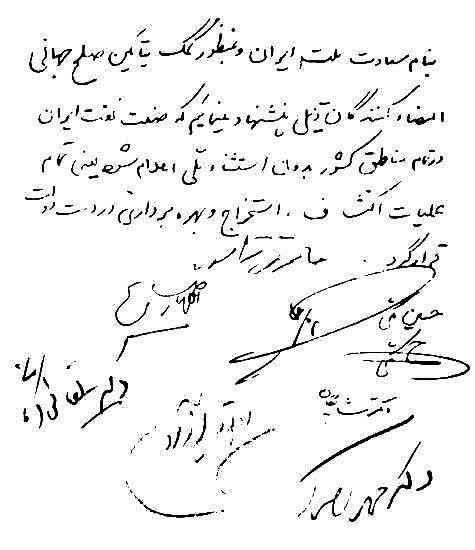 بنام سعادت ملت ایران و بمنظور کمک بتأمین صلح جهانی
امضاء کنندگان ذیل پیشنهاد مینمائیم که صنعت نفت ایران
در تمام مناطق کشور بدون استثناء ملی اعلام شود یعنی تمام
عملیات اکتشاف، استخراج و بهره برداری در دست دولت
قرار گیرد.
حائری زاده
اللهیار صالح
حسین مکی
دکتر بقائی
دکتر شایگان
آزاد
دکتر محمد مصدق